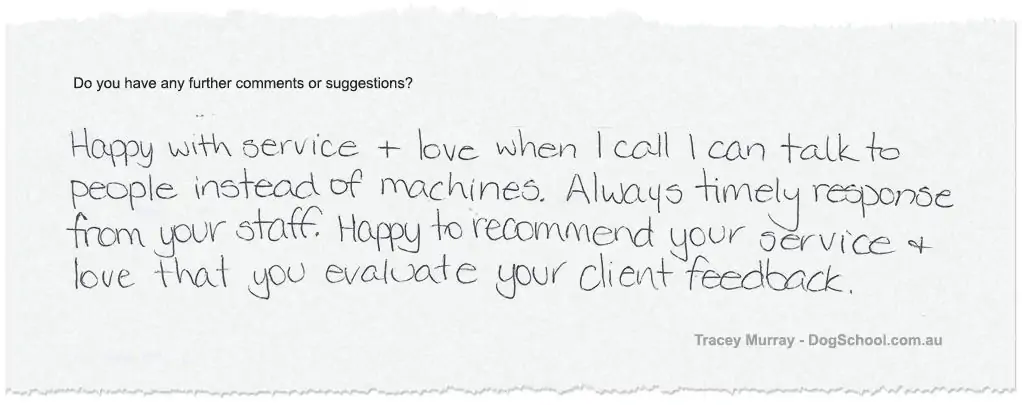 Do you have any further comments or suggestions?
Happy with service + love when I call I can talk to
people instead of machines. Always timely response
from your staff. Happy to recommend your service +
love that you evaluate your client feedback.
Tracey Murray - DogSchool.com.au